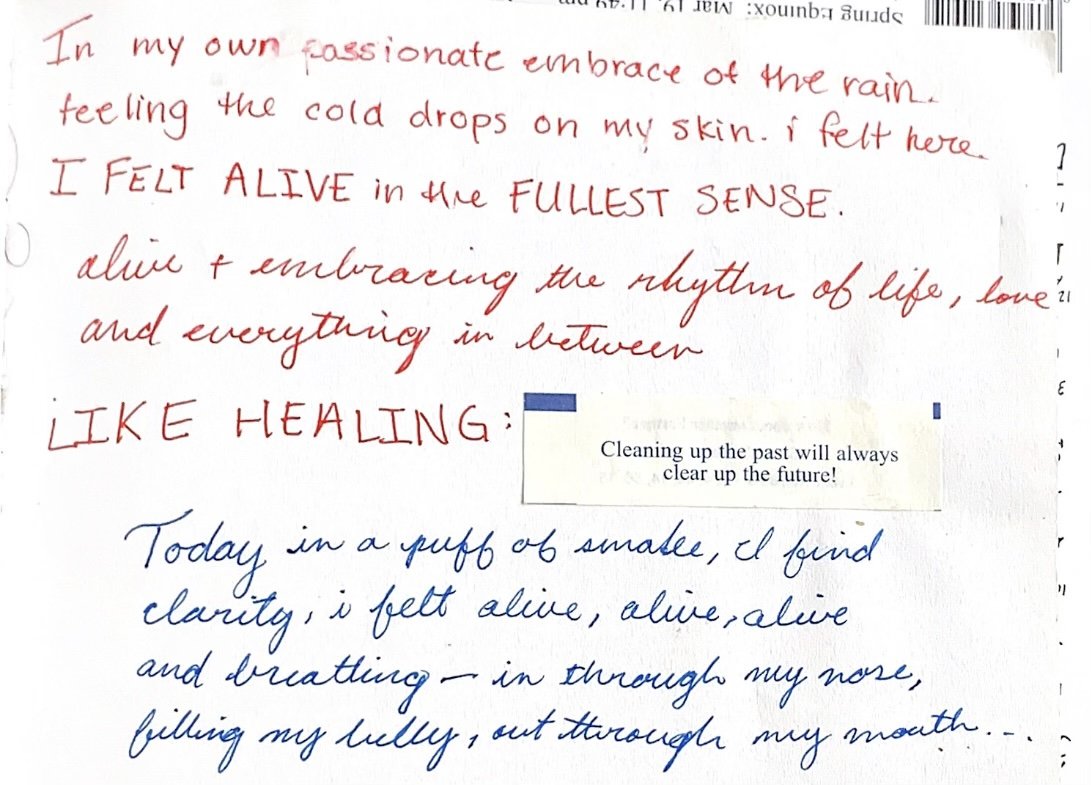 Spring Equinox: Mar 19, 11:49 pm
In my own passionate embrace of the rain.
feeling the cold drops on my skin. i felt here.
I FELT ALIVE in the FULLEST SENSE.
alive + embracing the rhythm of life, love
and everything in between
LIKE HEALING:
Cleaning up the past will always
clear up the future!
Today in a puff of smoke, I find
clarity, i felt alive, alive, alive
and breathing — in through my nose,
filling my belly, out through my mouth...